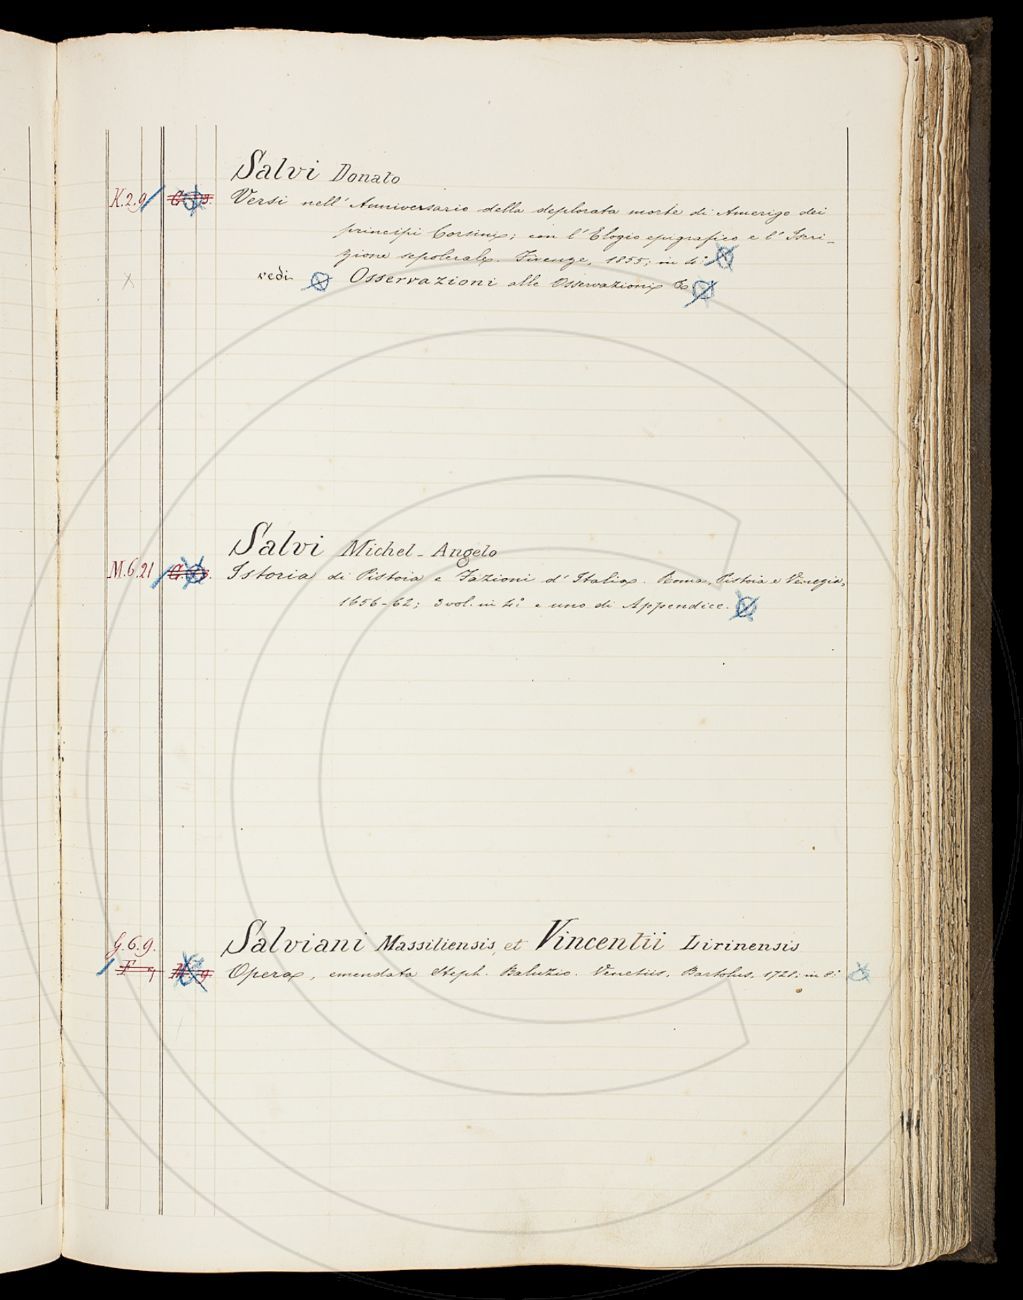 Salvi Donato
K.2.9 Versi nell' Anniversario della deplorata morte di Amerigo dei
principi Corsini; con l' Elogio epigrafico e l' Iscri-
zione sepolcrale. Firenze, 1855; in 4.°
vedi Osservazioni alle Osservazioni &
Salvi Michel-Angelo
M.6.21 Istoria di Pistoia e Fazioni d' Italia. Roma, Pistoia e Venezia,
1656-62; 3 vol. in 4.° e uno di Appendice.
Salviani Massiliensis, et Vincentii Lirinensis
G.6.9.
Opera, emendata Steph. Baluzio. Venetiis, Bartolus, 1721; in 8.°